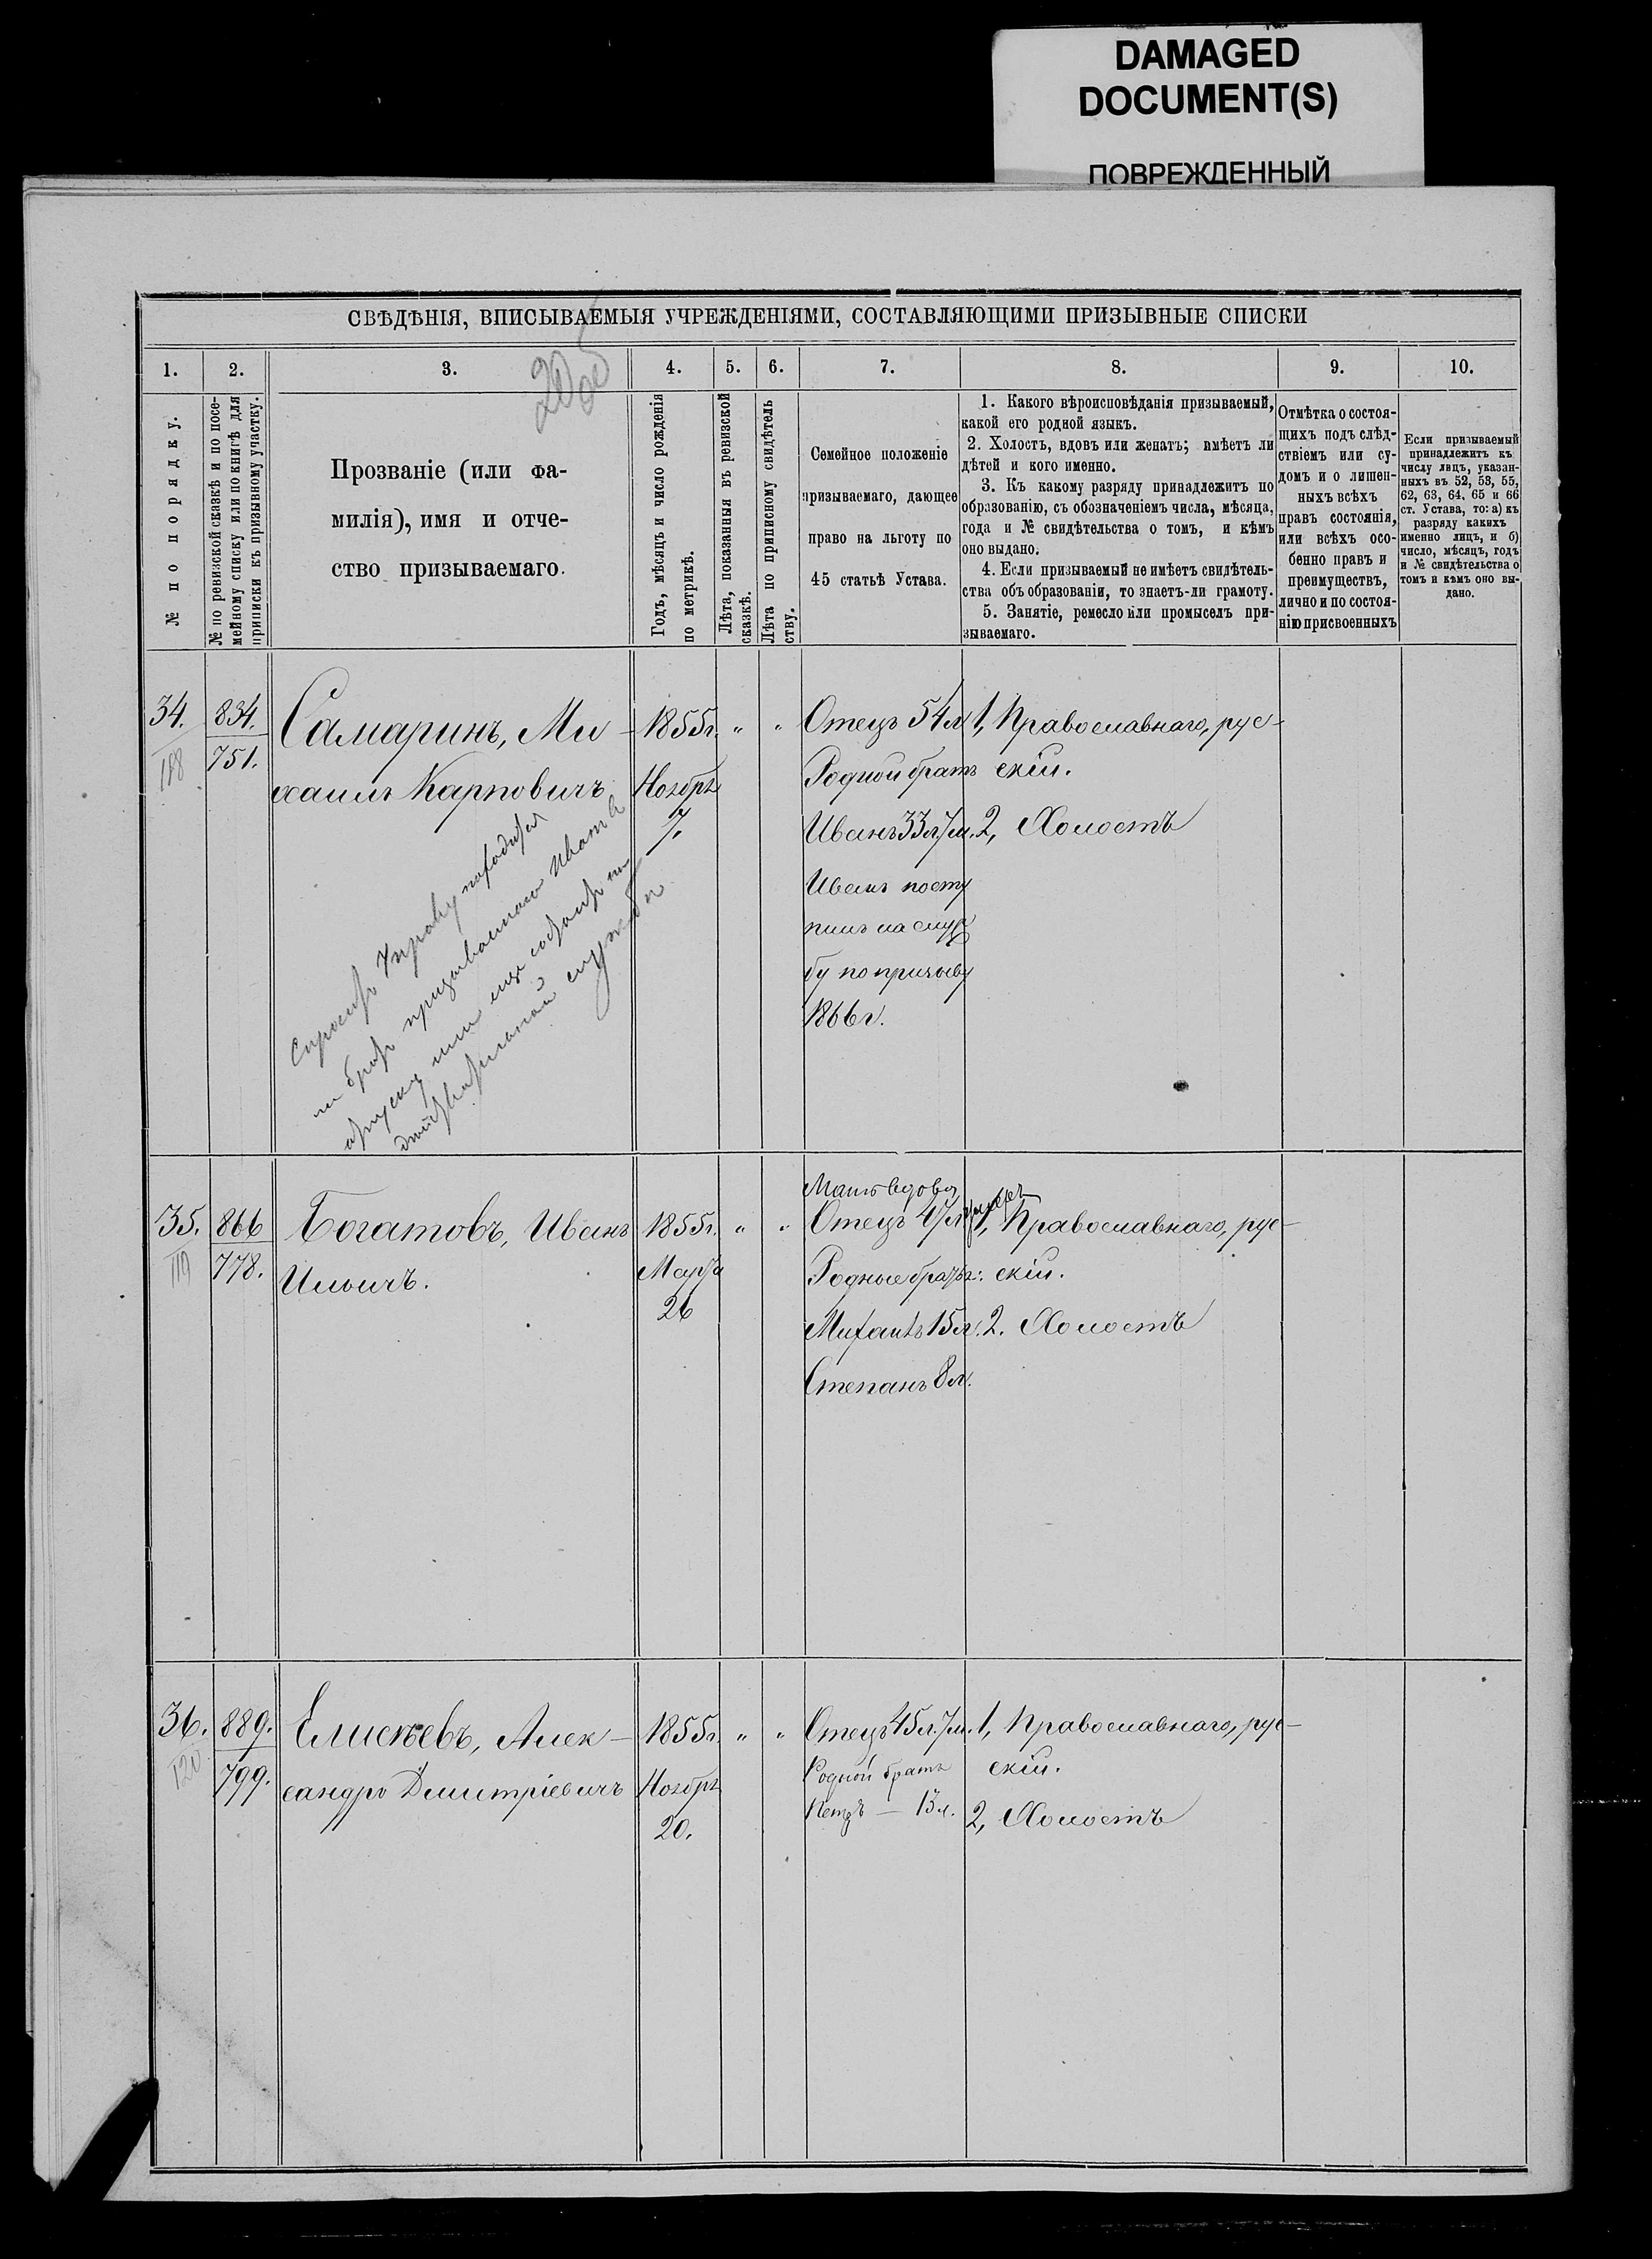 DAMAGED
DOCUMENT(S)
ПОВРЕЖДЕННЫЙ
СВѢДѢНІЯ, ВПИСЫВАЕМЫЯ УЧРЕЖДЕНІЯМИ, СОСТАВЛЯЮЩИМИ ПРИЗЫВНЫЕ СПИСКИ
1.
2.
3.
4.
5.
6.
7.
8.
9.
10.
№ по порядку.
№ по ревизской сказкѣ и по посе-
мейному списку или по книгѣ для
приписки къ призывному участку.
Прозваніе (или фа-
милія), имя и отче-
ство призываемаго.
Годъ, мѣсяцъ и число рожденія
по метрикѣ.
Лѣта, показанныя въ ревизской
сказкѣ.
Лѣта по приписному свидѣтель
ству.
Семейное положеніе
призываемаго, дающее
право на льготу по
45 статьѣ Устава.
1. Какого вѣроисповѣданія призываемый,
какой его родной языкъ.
2. Холостъ, вдовъ или женатъ; имѣетъ ли
дѣтей и кого именно.
3. Къ какому разряду принадлежитъ по
образованію, съ обозначеніемъ числа, мѣсяца,
года и № свидѣтельства о томъ, и кѣмъ
оно выдано.
4. Если призываемый не имѣетъ свидѣтель-
ства объ образованіи, то знаетъ-ли грамоту.
5. Занятіе, ремесло или промыселъ при-
зываемаго.
Отмѣтка о состоя-
щихъ подъ слѣд-
ствіемъ или су-
домъ и о лишен-
ныхъ всѣхъ
правъ состоянія,
или всѣхъ осо-
бенно правъ и
преимуществъ,
лично и по состоя-
нію присвоенныхъ
Если призываемый
принадлежитъ къ
числу лицъ, указан-
ныхъ въ 52, 53, 55,
62, 63, 64, 65 и 66
ст. Устава, то: а) къ
разряду какихъ
именно лицъ, и б)
число, мѣсяцъ, годъ
и № свидѣтельства о
томъ и кѣмъ оно вы-
дано.
34.
118
834.
751.
Самаринъ, Ми-
хаилъ Карповичъ
1855г.
Ноября
7.
" "
Отецъ 54л
Родной братъ
Иванъ 33л 7м.
Иванъ посту
пилъ на служ
бу по призыву
1866г.
1, Православнаго, рус-
скій.
2, Холостъ
Спросить Управу находится
ли братъ призываемаго Иванъ въ
отпуску или еще состоитъ на
дѣйствительной службѣ
35.
119
866
778.
Богатовъ, Иванъ
Ильичъ.
1855г.
Марта
26
" "
Мать вдова
Отецъ 47л
Родные братья:
Михаилъ 15л.
Степанъ 8л.
1, Православнаго, рус-
скій.
2. Холостъ
36.
120
889.
799.
Елисѣевъ, Алек-
сандръ Дмитріевичъ
1855г.
Ноября
20.
" "
Отецъ 45л. 7м.
Родной братъ
Петръ — 15л.
1, Православнаго, рус-
скій.
2, Холостъ